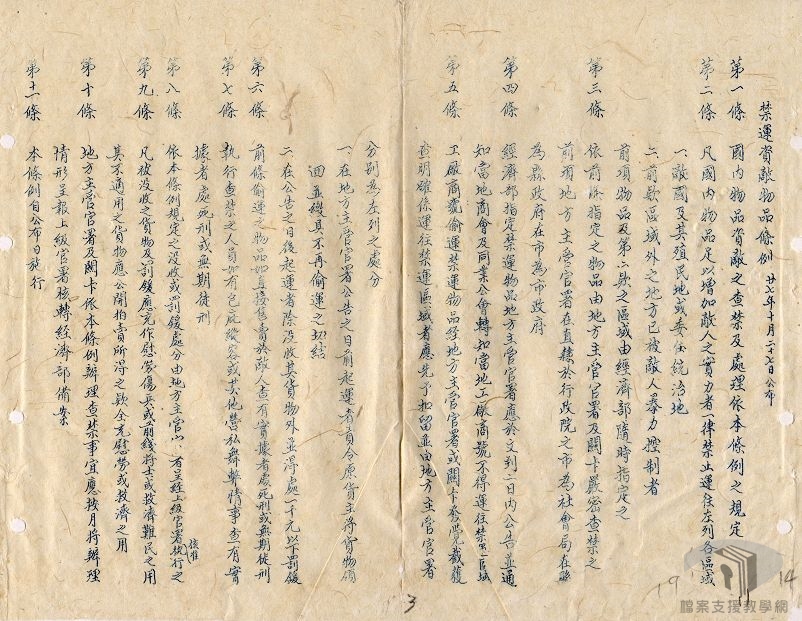 禁運資敵物品條例 廿七年十月二十七日公布
第一條 國內物品資敵之查禁及處理依本條例之規定
第二條 凡國內物品足以增加敵人之實力者一律禁止運往左列各區域
一、敵國及其殖民地或委任統治地
二、前款區域外之地方已被敵人暴力控制者
前項物品及第二款之區域由經濟部隨時指定之
第三條 依前條指定之物品由地方主管官署及關卡嚴密查禁之
前項地方主管官署在直轄於行政院之市為社會局在縣
為縣政府在市為市政府
第四條 經濟部指定禁運物品地方主管官署應於文到三日內公告並通
知當地商會及同業公會轉知當地工廠商號不得運往禁運區域
第五條 工廠商號偷運禁運物品經地方主管官署或關卡發覺截獲
查明確係運往禁運區域者應先予扣留並由地方主管官署
分別為左列之處分
一、在地方主管官署公告之日前起運者責令原貨主將貨物領
回並繳具不再偷運之切結
二、在公告之日後起運者除沒收其貨物外並得處一千元以下罰鍰
第六條 前條偷運之物品如直接售賣於敵人查有實據者處死刑或無期徒刑
第七條 執行查禁之人員如有包庇縱容或其他營私舞弊情事查有實
據者處死刑或無期徒刑
第八條 依本條例規定之沒收或罰鍰處分由地方主官署呈經上級官署核准執行之
第九條 凡被沒收之貨物及罰鍰應充作慰勞傷兵或前綫將士或救濟難民之用
其不適用之貨物應公開拍賣所得之款全充慰勞或救濟之用
第十條 地方主管官署及關卡依本條例辦理查禁事宜應按月將辦理
情形呈報上級官署核轉經濟部備案
第十一條 本條例自公布日施行
3
19
14
檔案支援教學網